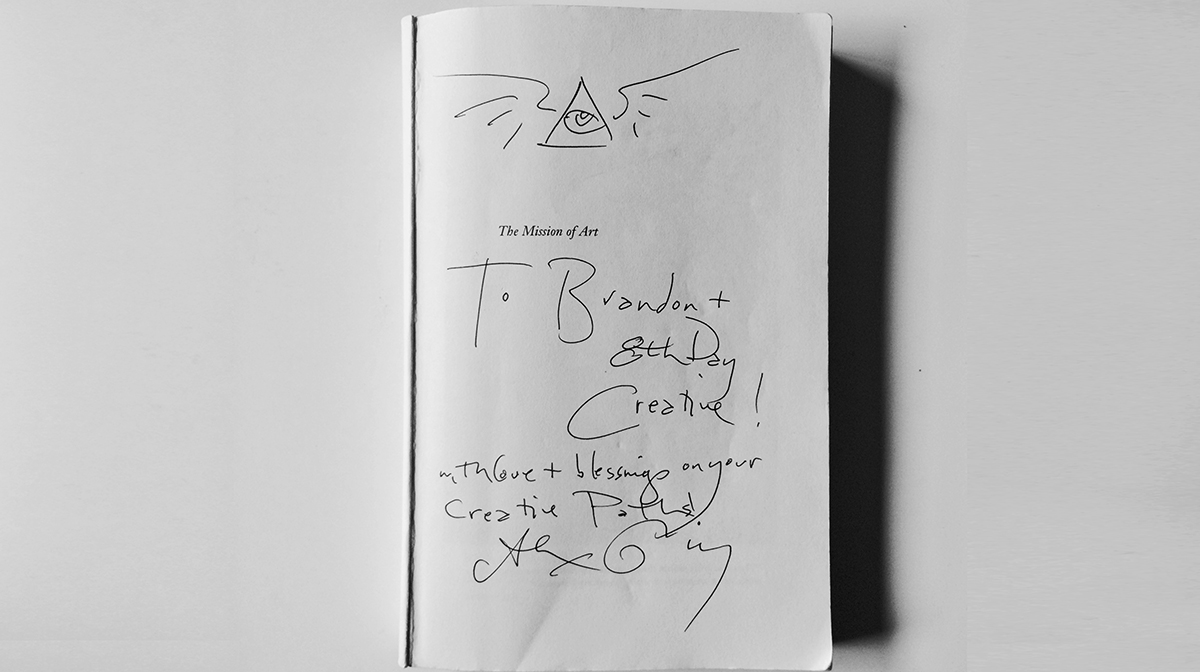 The Mission of Art
To Brandon +
8th Day
Creative!
with love + blessings on your
Creative Paths!
Alex Grey